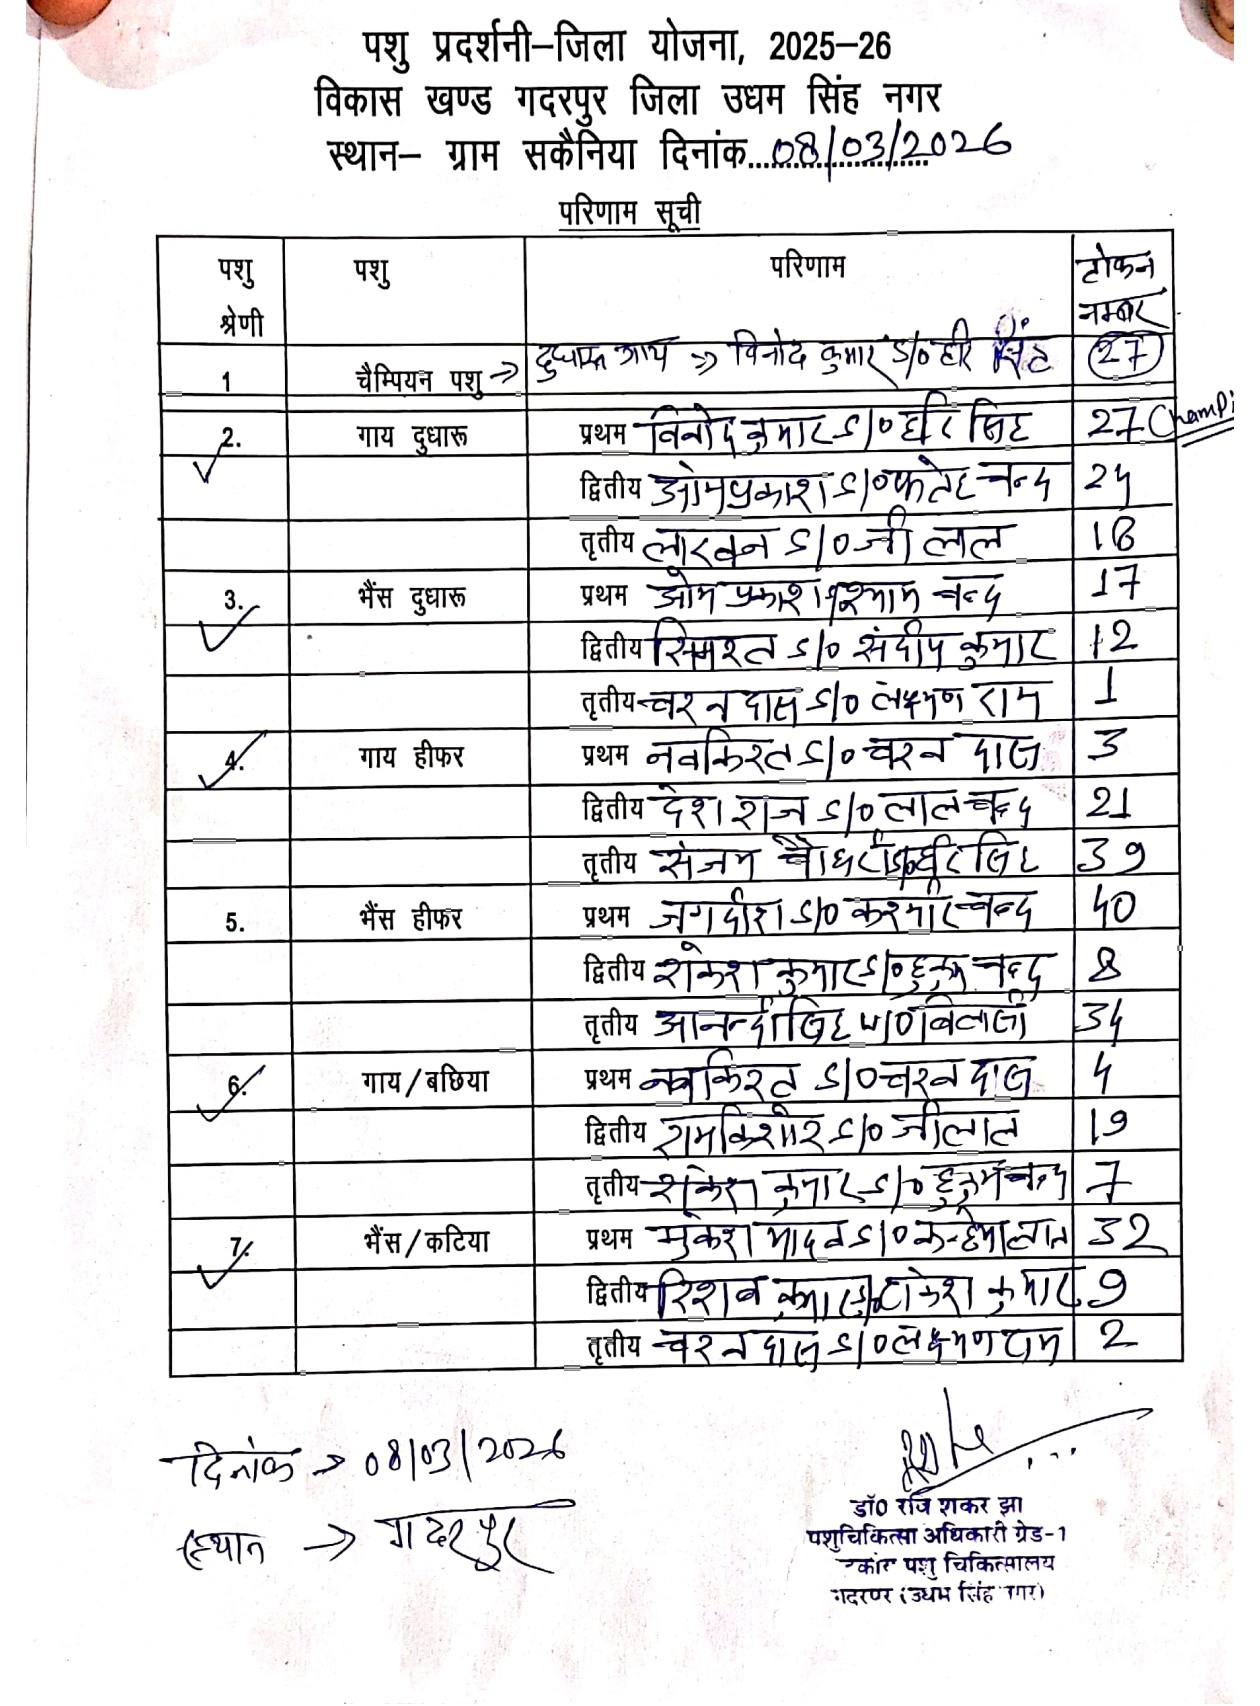 पशु प्रदर्शनी–जिला योजना, 2025–26
विकास खण्ड गदरपुर जिला उधम सिंह नगर
स्थान– ग्राम सकैनिया दिनांक 08/03/2026
परिणाम सूची
पशु श्रेणी पशु परिणाम टोकन नम्बर
1 चैम्पियन पशु → दुधारू गाय → विनोद कुमार S/o हरि सिंह 27
2. गाय दुधारू प्रथम विनोद कुमार S/o हरि सिंह 27 Champi
द्वितीय ओमप्रकाश S/o फतेह चन्द 24
तृतीय लाखन S/o जी लाल 18
3. भैंस दुधारू प्रथम ओम प्रकाश श्याम चन्द 17
द्वितीय सिमरत S/o संदीप कुमार 12
तृतीय चरन दास S/o लक्ष्मण राम 1
4. गाय हीफर प्रथम नवकिरत S/o चरन दास 3
द्वितीय देश राज S/o लाल चन्द 21
तृतीय संजय चौधरी S/o हरि सिंह 39
5. भैंस हीफर प्रथम जगदीश S/o कश्मीर चन्द 40
द्वितीय राकेश कुमार S/o हुकुम चन्द 8
तृतीय आनन्दी सिंह 34
6. गाय/बछिया प्रथम नवकिरत S/o चरन दास 4
द्वितीय रामकिशोर S/o जीलाल 19
तृतीय राकेश कुमार S/o हुकुम चन्द 7
7. भैंस/कटिया प्रथम मुकेश यादव S/o कन्हैयालाल 32
द्वितीय रिशव कुमार S/o राकेश कुमार 9
तृतीय चरन दास S/o लक्ष्मण राम 2
दिनांक → 08/03/2026
स्थान → गदरपुर
डॉ0 रवि शंकर झा
पशुचिकित्सा अधिकारी ग्रेड-1
पशु चिकित्सालय
गदरपुर (उधम सिंह नगर)